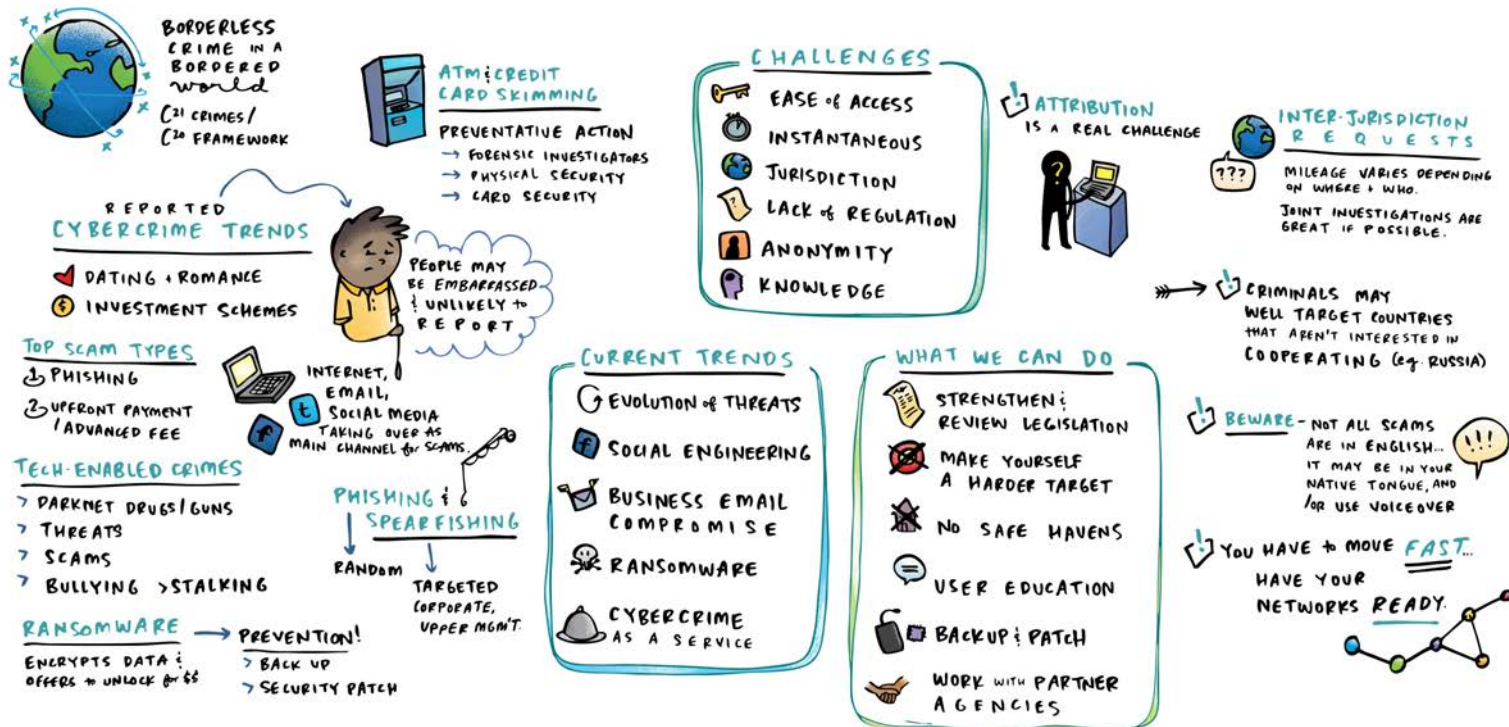 BORDERLESS
CRIME IN A
BORDERED
world
C21 CRIMES/
C20 FRAMEWORK
ATM & CREDIT
CARD SKIMMING
PREVENTATIVE ACTION
→ FORENSIC INVESTIGATORS
→ PHYSICAL SECURITY
→ CARD SECURITY
REPORTED
CYBERCRIME TRENDS
DATING + ROMANCE
$ INVESTMENT SCHEMES
PEOPLE MAY
BE EMBARRASSED
& UNLIKELY to
REPORT
TOP SCAM TYPES
1 PHISHING
2 UPFRONT PAYMENT
/ ADVANCED FEE
INTERNET,
EMAIL,
SOCIAL MEDIA
TAKING OVER AS
MAIN CHANNEL for SCAMS.
f
t
TECH-ENABLED CRIMES
> DARKNET DRUGS/GUNS
> THREATS
> SCAMS
> BULLYING > STALKING
PHISHING &
SPEARFISHING
RANDOM
TARGETED
CORPORATE,
UPPER MGM'T.
RANSOMWARE
ENCRYPTS DATA &
OFFERS to UNLOCK for $$
PREVENTION!
> BACK UP
> SECURITY PATCH
CHALLENGES
EASE of ACCESS
INSTANTANEOUS
JURISDICTION
? LACK of REGULATION
ANONYMITY
KNOWLEDGE
CURRENT TRENDS
EVOLUTION of THREATS
f SOCIAL ENGINEERING
BUSINESS EMAIL
COMPROMISE
RANSOMWARE
CYBERCRIME
AS A SERVICE
WHAT WE CAN DO
STRENGTHEN &
REVIEW LEGISLATION
MAKE YOURSELF
A HARDER TARGET
NO SAFE HAVENS
USER EDUCATION
BACKUP & PATCH
WORK with PARTNER
AGENCIES
! ATTRIBUTION
IS A REAL CHALLENGE
?
! INTER-JURISDICTION
REQUESTS
???
MILEAGE VARIES DEPENDING
ON WHERE + WHO.
JOINT INVESTIGATIONS ARE
GREAT IF POSSIBLE.
! CRIMINALS MAY
WELL TARGET COUNTRIES
THAT AREN'T INTERESTED IN
COOPERATING (e.g. RUSSIA)
! BEWARE - NOT ALL SCAMS
ARE IN ENGLISH...
IT MAY BE IN YOUR
NATIVE TONGUE, AND
/OR USE VOICEOVER
!!!
! YOU HAVE to MOVE FAST...
HAVE YOUR
NETWORKS READY.